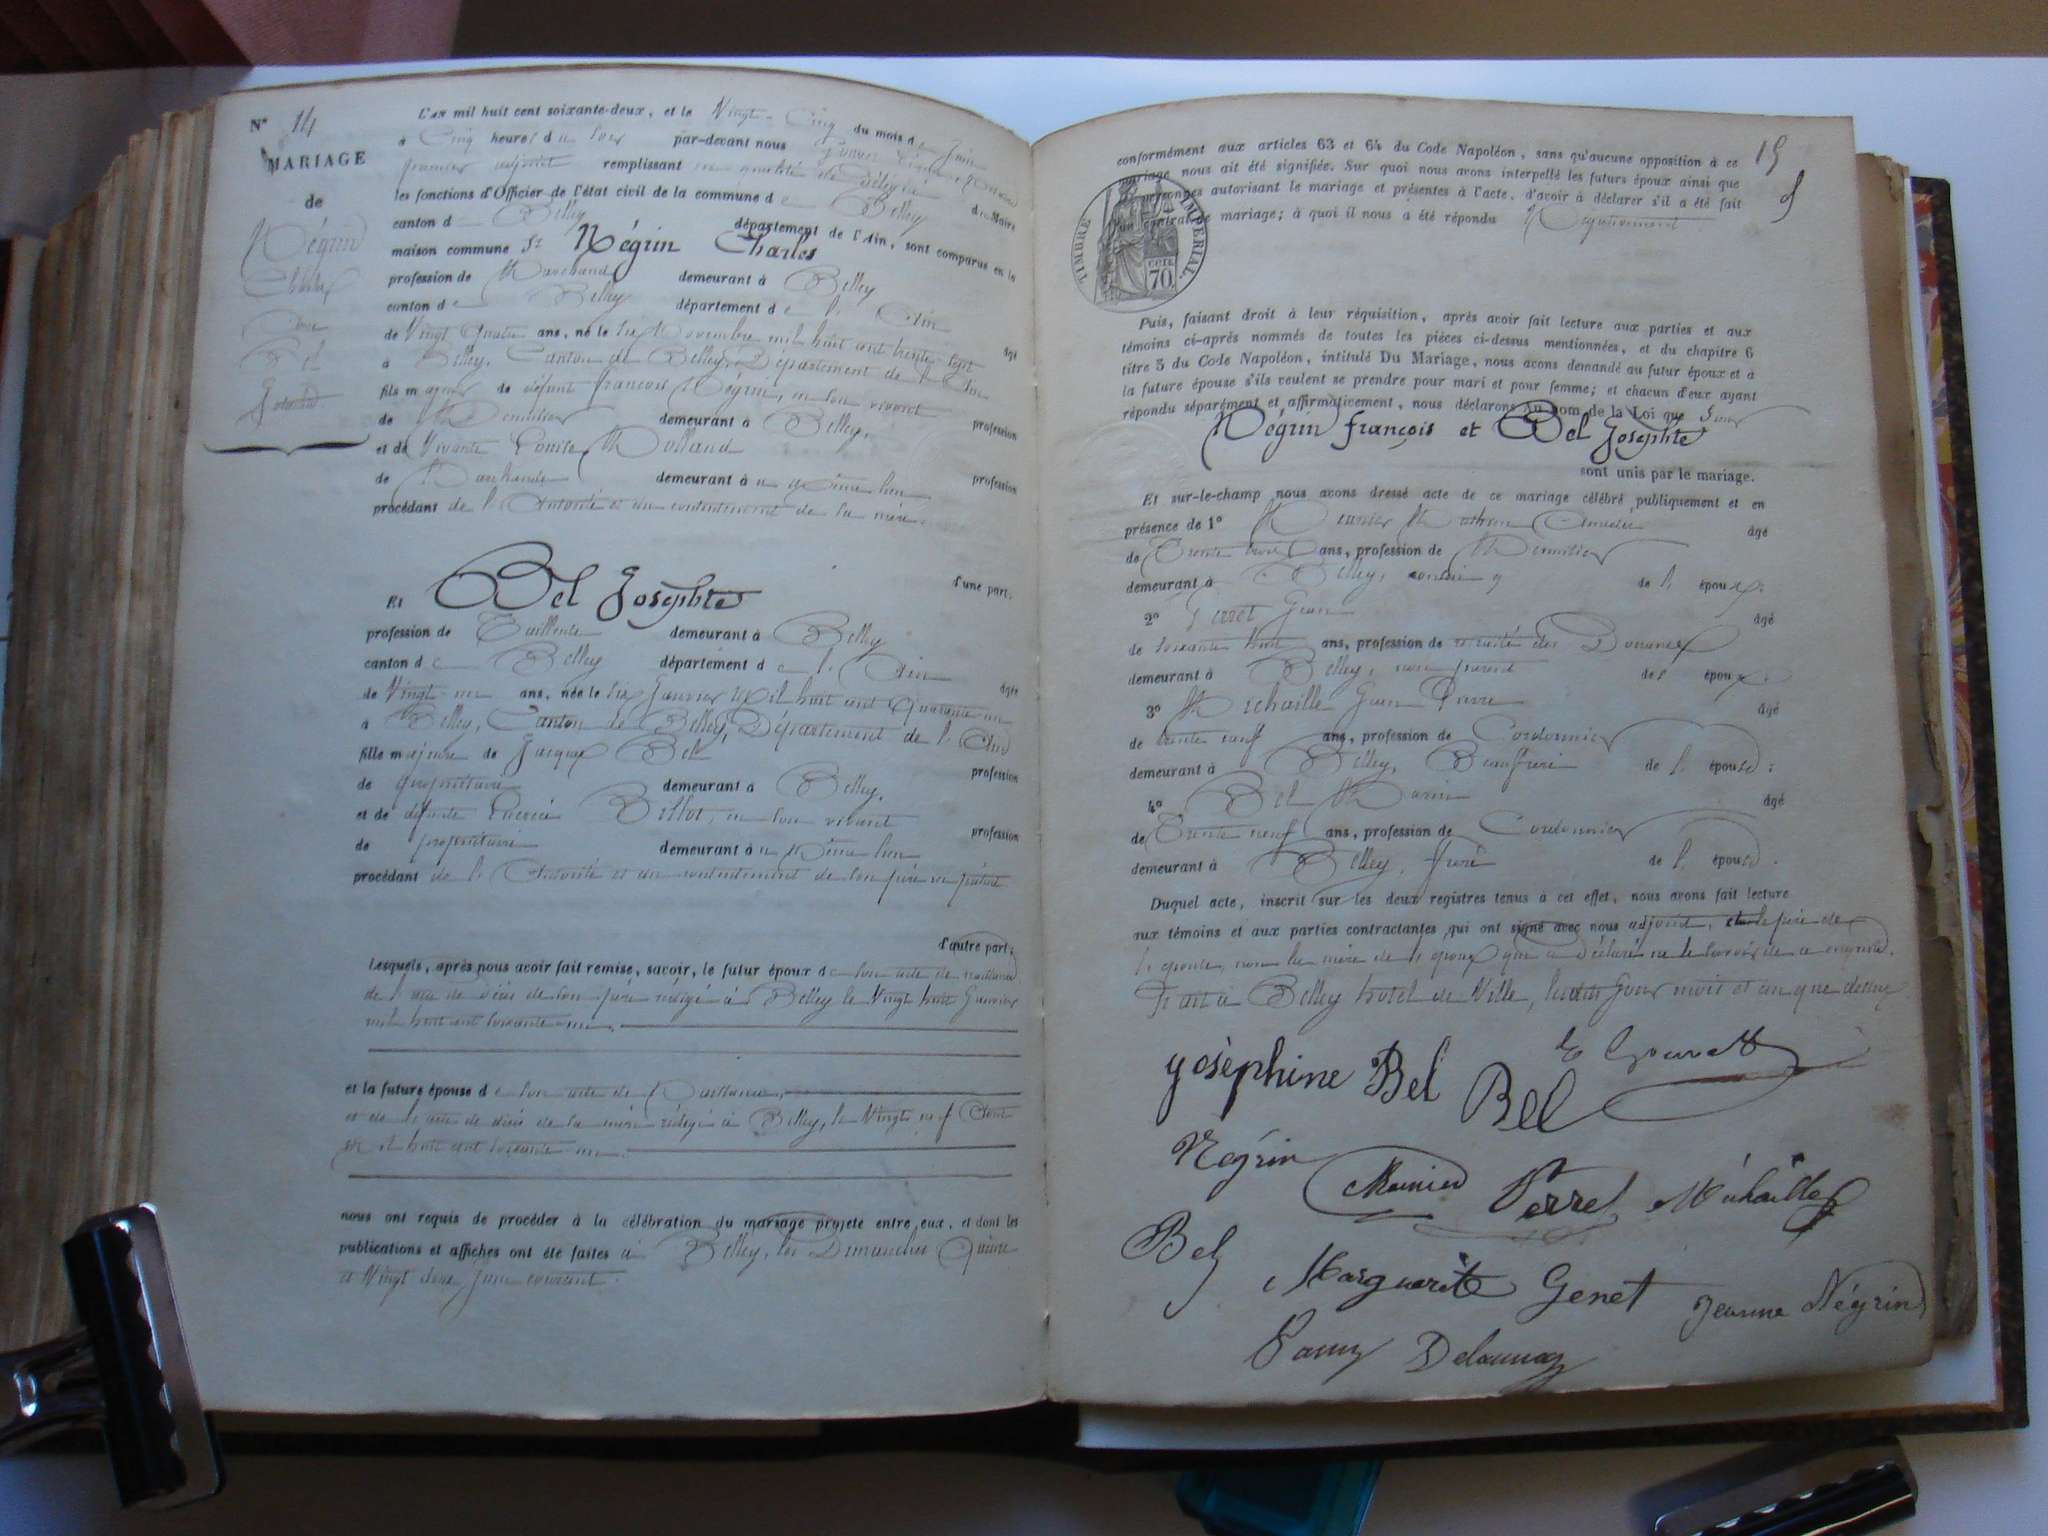 N° 14
MARIAGE
de
Négrin
Charles
et
Bel
L'an mil huit cent soixante-deux, et le Vingt-Cinq du mois de Juin
à Cinq heures du soir par-devant nous
premier adjoint remplissant en qualité de délégué
du Maire
les fonctions d'Officier de l'état civil de la commune de Belley
canton de Belley département de l'Ain, sont comparus en la
maison commune Sr Négrin Charles
profession de Marchand demeurant à Belley
canton de Belley département de l'Ain
âgé
de Vingt Quatre ans, né le six Novembre mil huit cent trente sept
à Belley, Canton de Belley, Département de l'Ain
fils majeur de défunt françois Négrin, en son vivant
profession
de Menuisier demeurant à Belley,
et de Vivante Louise Molland
profession
de Marchande demeurant à au même lieu
procédant de l'Autorité et du consentement de sa mère
d'une part;
Et Bel Josephte
profession de Tailleuse demeurant à Belley
canton de Belley département de l'Ain
âgée
de Vingt un ans, née le six Janvier Mil huit cent Quarante un
à Belley, Canton de Belley, Département de l'Ain
fille majeure de Jacques Bel
profession
de propriétaire demeurant à Belley,
et de défunte Billot, en son vivant
profession
de propriétaire demeurant à au même lieu
procédant de l'Autorité et du consentement de son père ici présent
d'autre part;
Lesquels, après nous avoir fait remise, savoir, le futur époux de son acte de naissance
de l'acte de décès de son père rédigé à Belley le Vingt huit Janvier
mil huit cent soixante un.
et la future épouse de son acte de Naissance,
et de l'acte de décès de sa mère rédigé à Belley, le Vingt neuf Août
mil huit cent soixante un.
nous ont requis de procéder à la célébration du mariage projeté entre eux, et dont les
publications et affiches ont été faites à Belley, les Dimanches Quinze
et Vingt deux Juin courant.
15
conformément aux articles 63 et 64 du Code Napoléon, sans qu'aucune opposition à ce
mariage nous ait été signifiée. Sur quoi nous avons interpellé les futurs époux ainsi que
personnes autorisant le mariage et présentes à l'acte, d'avoir à déclarer s'il a été fait
contrat de mariage; à quoi il nous a été répondu Négativement
TIMBRE IMPERIAL
70
Puis, faisant droit à leur réquisition, après avoir fait lecture aux parties et aux
témoins ci-après nommés de toutes les pièces ci-dessus mentionnées, et du chapitre 6
titre 5 du Code Napoléon, intitulé Du Mariage, nous avons demandé au futur époux et à
la future épouse s'ils veulent se prendre pour mari et pour femme; et chacun d'eux ayant
répondu séparément et affirmativement, nous déclarons au nom de la Loi que
Négrin françois et Bel Josephte
sont unis par le mariage.
Et sur-le-champ nous avons dressé acte de ce mariage célébré publiquement et en
présence de 1°
âgé
de Trente trois ans, profession de Menuisier
demeurant à Belley, cousin de l'époux;
2° Perret Jean
âgé
de soixante huit ans, profession de retraité des Douanes
demeurant à Belley, non parent de l'époux;
3° Michaille Jean Pierre
âgé
de trente neuf ans, profession de Cordonnier
demeurant à Belley, Beaufrère de l'épouse;
4° Bel Marin
âgé
de Trente neuf ans, profession de Cordonnier
demeurant à Belley, frère de l'épouse.
Duquel acte, inscrit sur les deux registres tenus à cet effet, nous avons fait lecture
aux témoins et aux parties contractantes qui ont signé avec nous adjoint, et le père de
l'épouse, non la mère de l'époux qui a déclaré ne le savoir de ce enquise.
Fait à Belley hôtel de Ville, les dits Jour mois et an que dessus
yosèphine Bel
Bel
Négrin
Perret
Michaille
Bel
Marguerite Genet
Jeanne Négrin
Delaunay